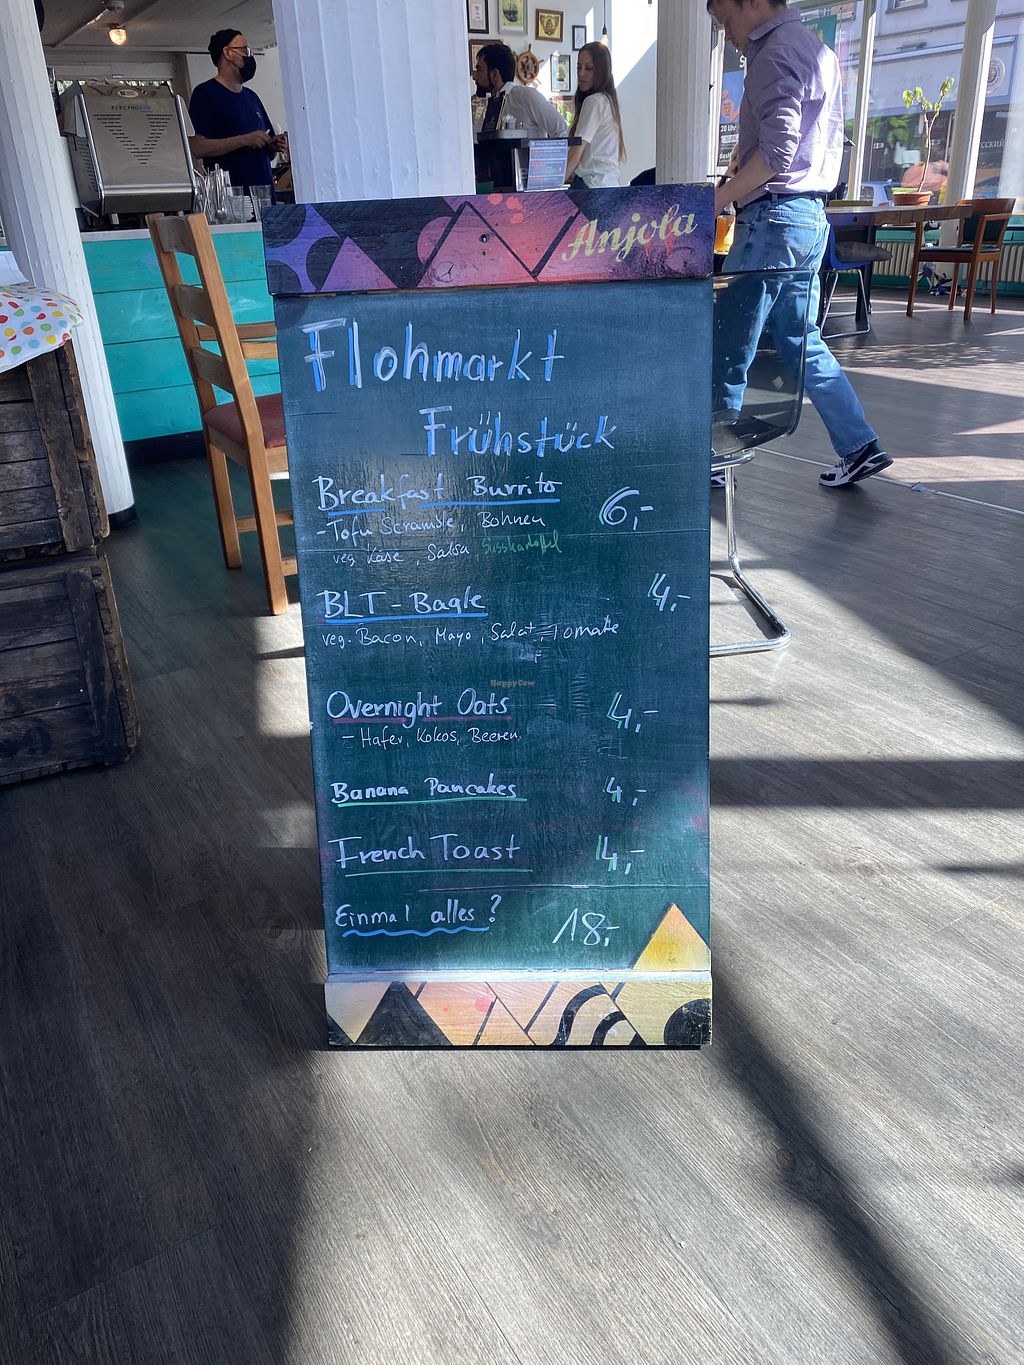 ELECTRO
20 Uhr
Anjola
Flohmarkt
Frühstück
Breakfast Burrito 6,-
-Tofu Scramble, Bohnen
veg Käse, Salsa, Süsskartoffel
BLT-Bagle 4,-
veg. Bacon, Mayo, Salat, Tomate
HappyCow
Overnight Oats 4,-
- Hafer, Kokos, Beeren
Banana Pancakes 4,-
French Toast 4,-
Einmal alles? 18,-